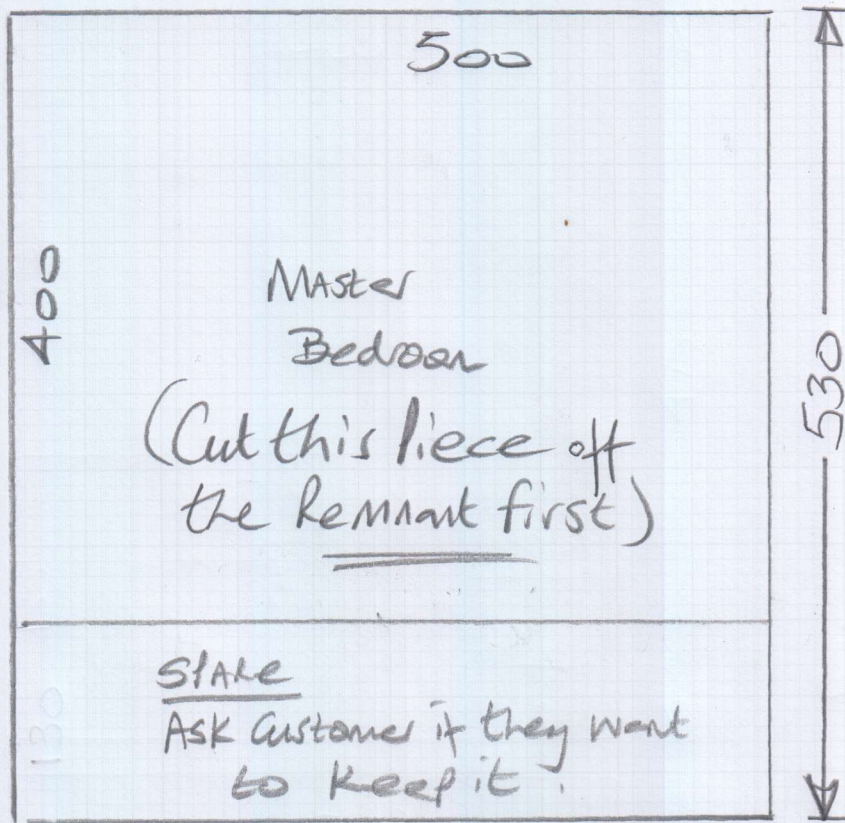 500
400
530
Master
Bedroom
(Cut this Piece off
the Remnant first)
130
SPARE
ASK Customer if they want
to keep it.